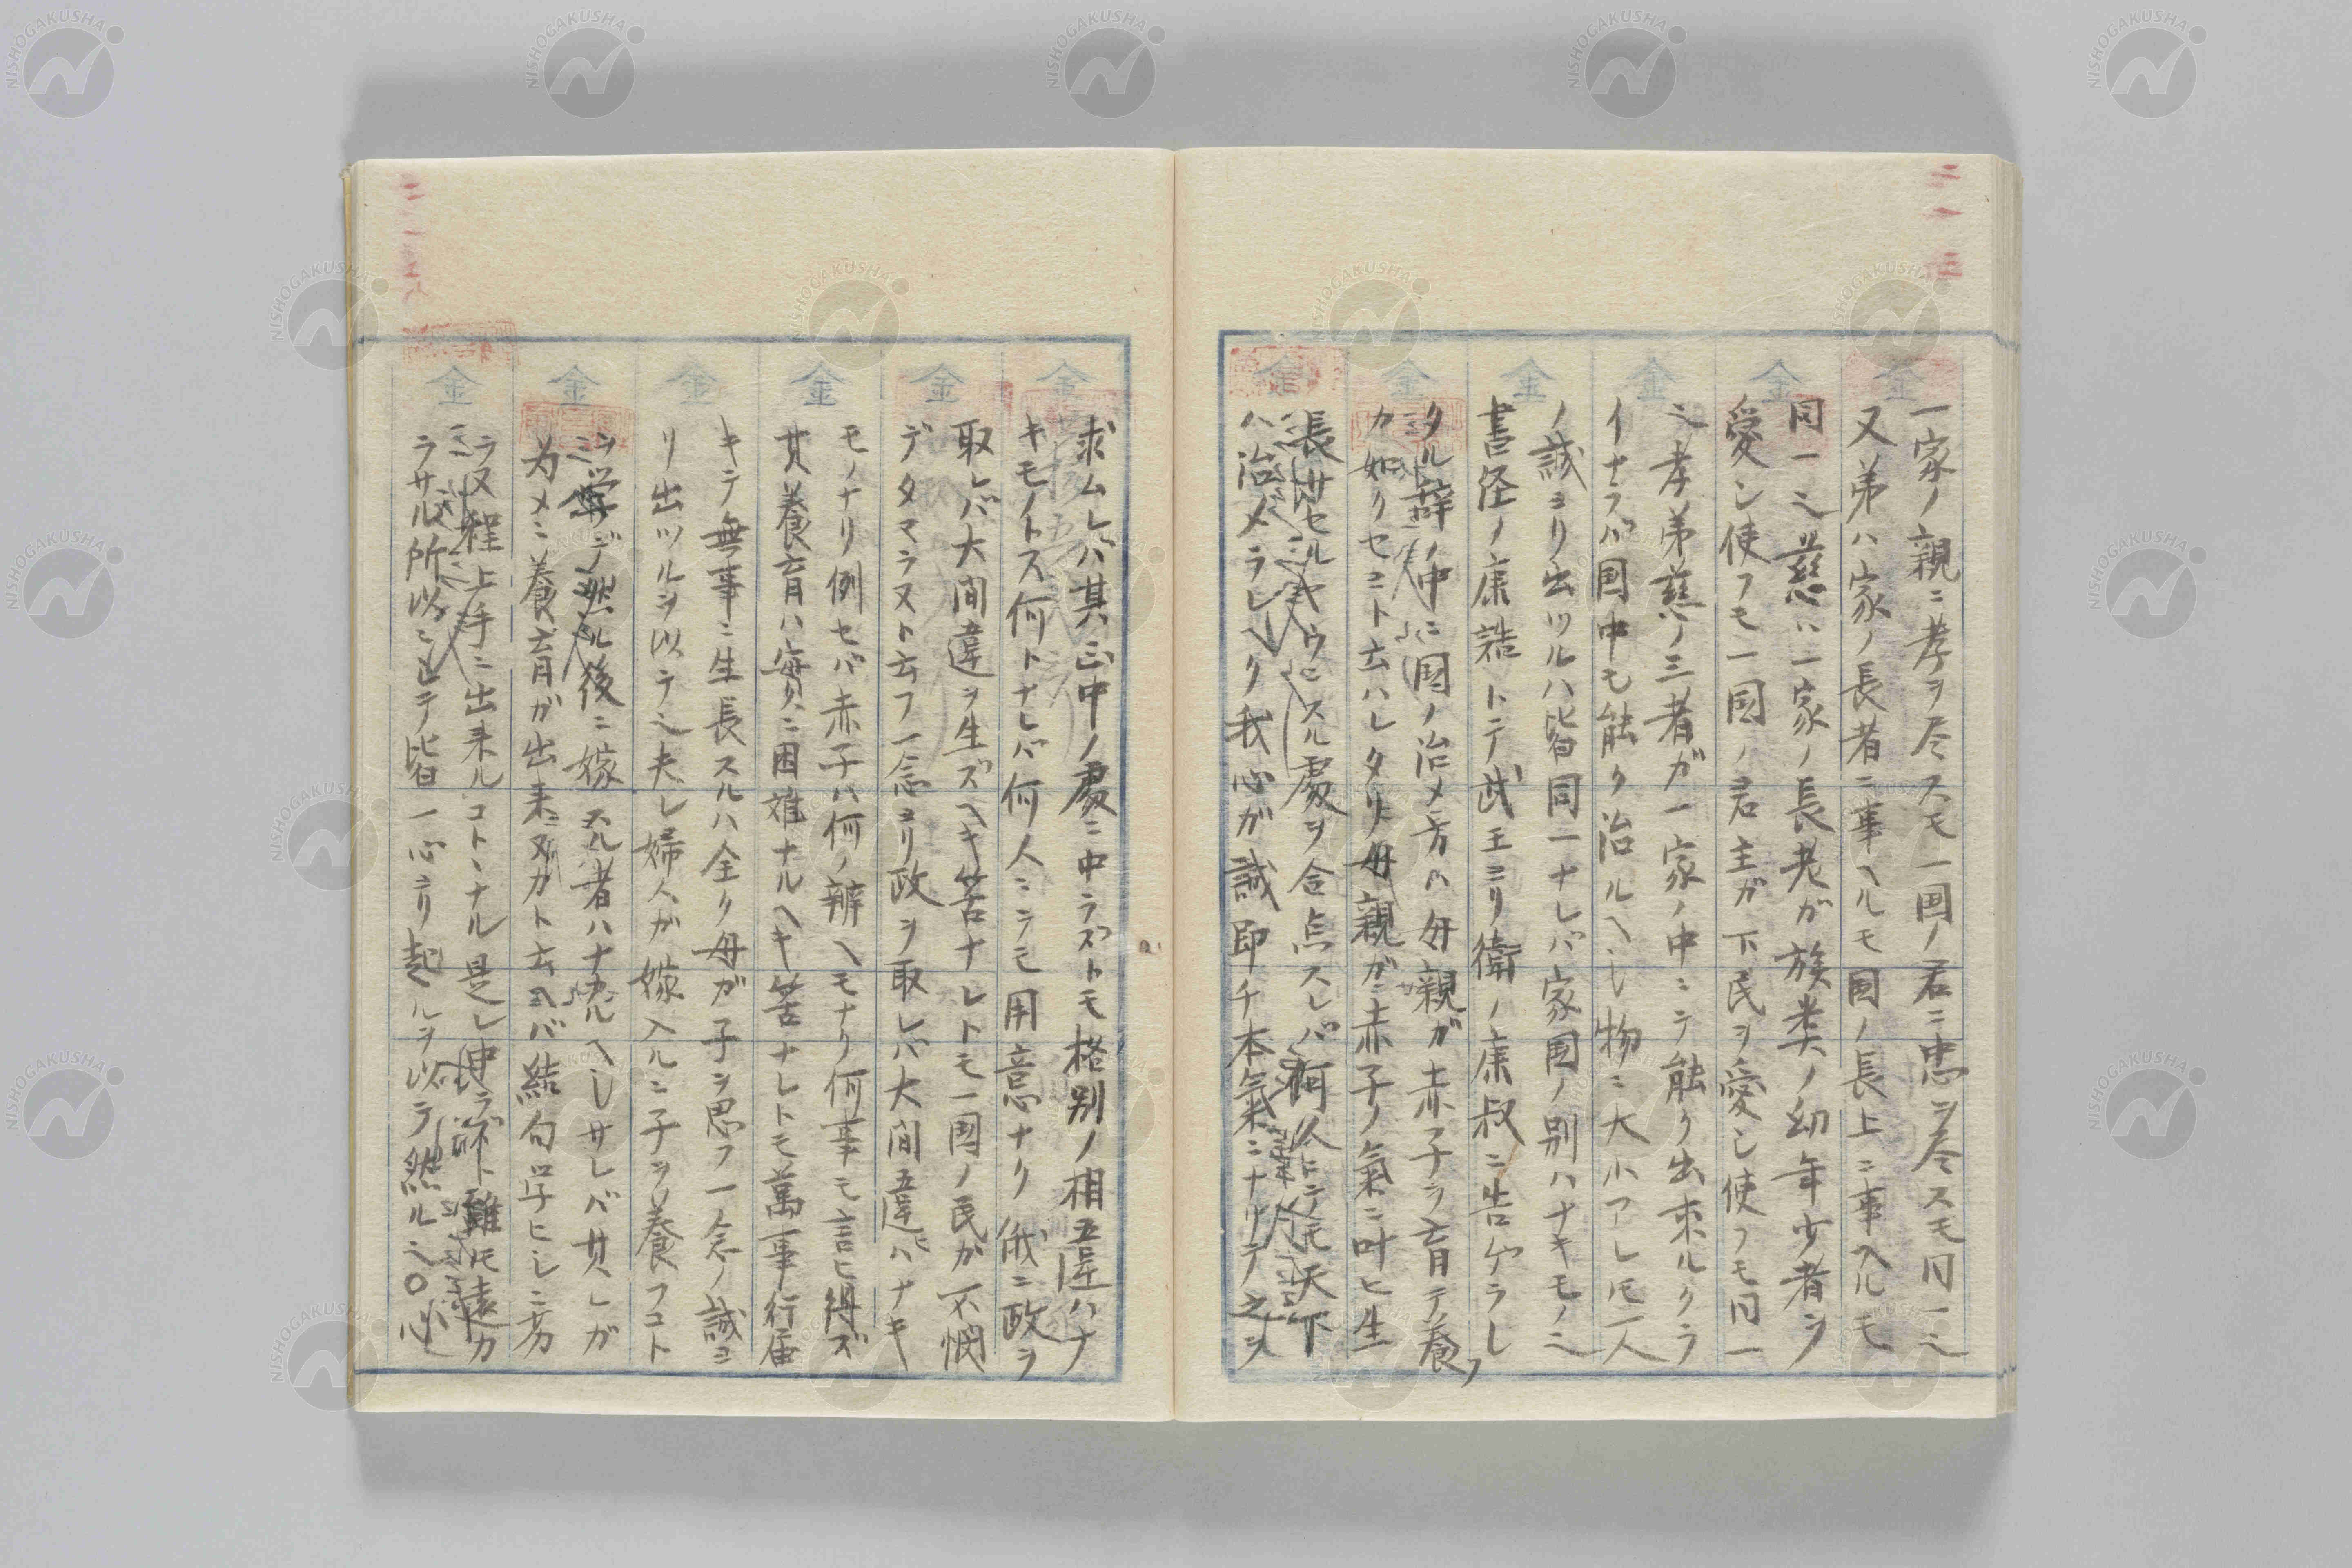 一家ノ親ニ孝ヲ尽スモ一国ノ君ニ忠ヲ尽スモ同一ミ
又弟ハ家ノ長者ニ事ヘルモ国ノ長上ニ事ヘルモ
同一ミ慈ハ一家ノ長老ガ族類ノ幼年少者ヲ
愛シ使フモ一国ノ君主ガ下民ヲ愛シ使フモ同一
ミ孝弟慈ノ三者ガ一家ノ中ニテ能ク出来ルクラ
イナラバ国中モ能ク治ルヘシ物ニ大小アレ𪜈人
ノ誠ヨリ出ツルハ皆同一ナレバ家国ノ別ハナキモノミ
書経ノ康誥トテ武王ヨリ衛ノ康叔ニ告ゲラレ
タル辞ノ中ニ国ノ治メ方ハ母親ガ赤子ヲ育テ養フ
カ如クセヨト云ハレタリ母親ガ赤子ノ氣ニ叶ヒ生
長サセルヤウニスル處ヲ合点スレバ何人ニテモ天下
ハ治メラレヘク我心ガ誠即チ本氣ニナリテ之ヲ
求ムレバ其正中ノ處ニ中ラズトモ格別ノ相違ハナ
キモノトス何トナレバ何人ニテモ用意ナク俄ニ政ヲ
取レバ大間違ヲ生ズヘキ筈ナレトモ一国ノ民ガ不憫
デタマラヌト云フ一念ヨリ政ヲ取レバ大間違ハナキ
モノナリ例セバ赤子ハ何ノ辨ヘモナク何事モ言ヒ得ズ
其養育ハ実ニ困難ナルヘキ筈ナレトモ萬事行届
キテ無事ニ生長スルハ全ク母ガ子ヲ思フ一念ノ誠ヨ
リ出ツルヲ以テミ夫レ婦人ガ嫁入ルニ子ヲ養フコト
ヲ学デ然ル後ニ嫁スル者ハナカルヘシサレバ其レガ
為メニ養育ガ出来ヌカト云ヘバ結句学ヒシニ劣
ラヌ程上手ニ出来ルコトヽナル是レ中ラズト雖𪜈遠カ
ラサル所以ミ皆一心ヨリ起ルヲ以テ然ルミ〇心